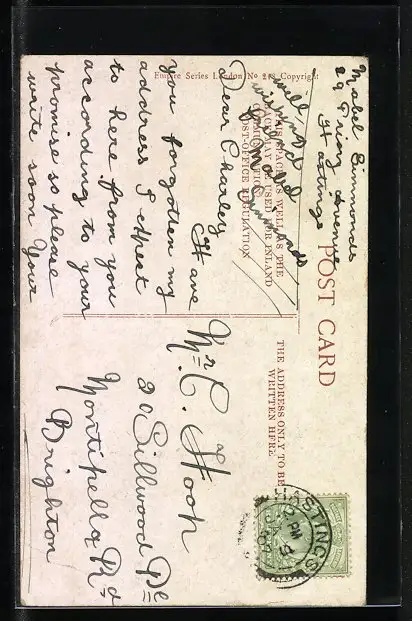 Empire Series London No 213 Copyright
POST CARD
THIS SPACE AS WELL AS THE
BACK MAY BE USED FOR INLAND
COMMUNICATION
POST-OFFICE REGULATION
THE ADDRESS ONLY TO BE
WRITTEN HERE
Mabel Simmonds
29 Priory Avenue
Hastings
Dear Charley
Have
you forgotten my
address I expect
to here from you
according to your
promise so please
write soon your
well
friend
Mabel
Simmonds
Mr C Hook
20 Sillwood Pl
Montipella Rd
Brighton
HASTINGS
PM